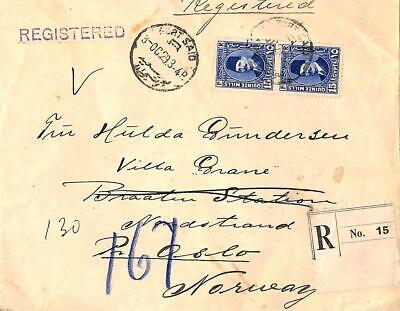 Registered
REGISTERED
PORT SAID
3-OC 29 3-4 P
15 QUINZE MILLS 15
15 QUINZE MILLS 15
V
Hulda Gundersen
Villa Grane
Braaten Station
Nordstrand
130
pr. Oslo
167
Norway
R No. 15